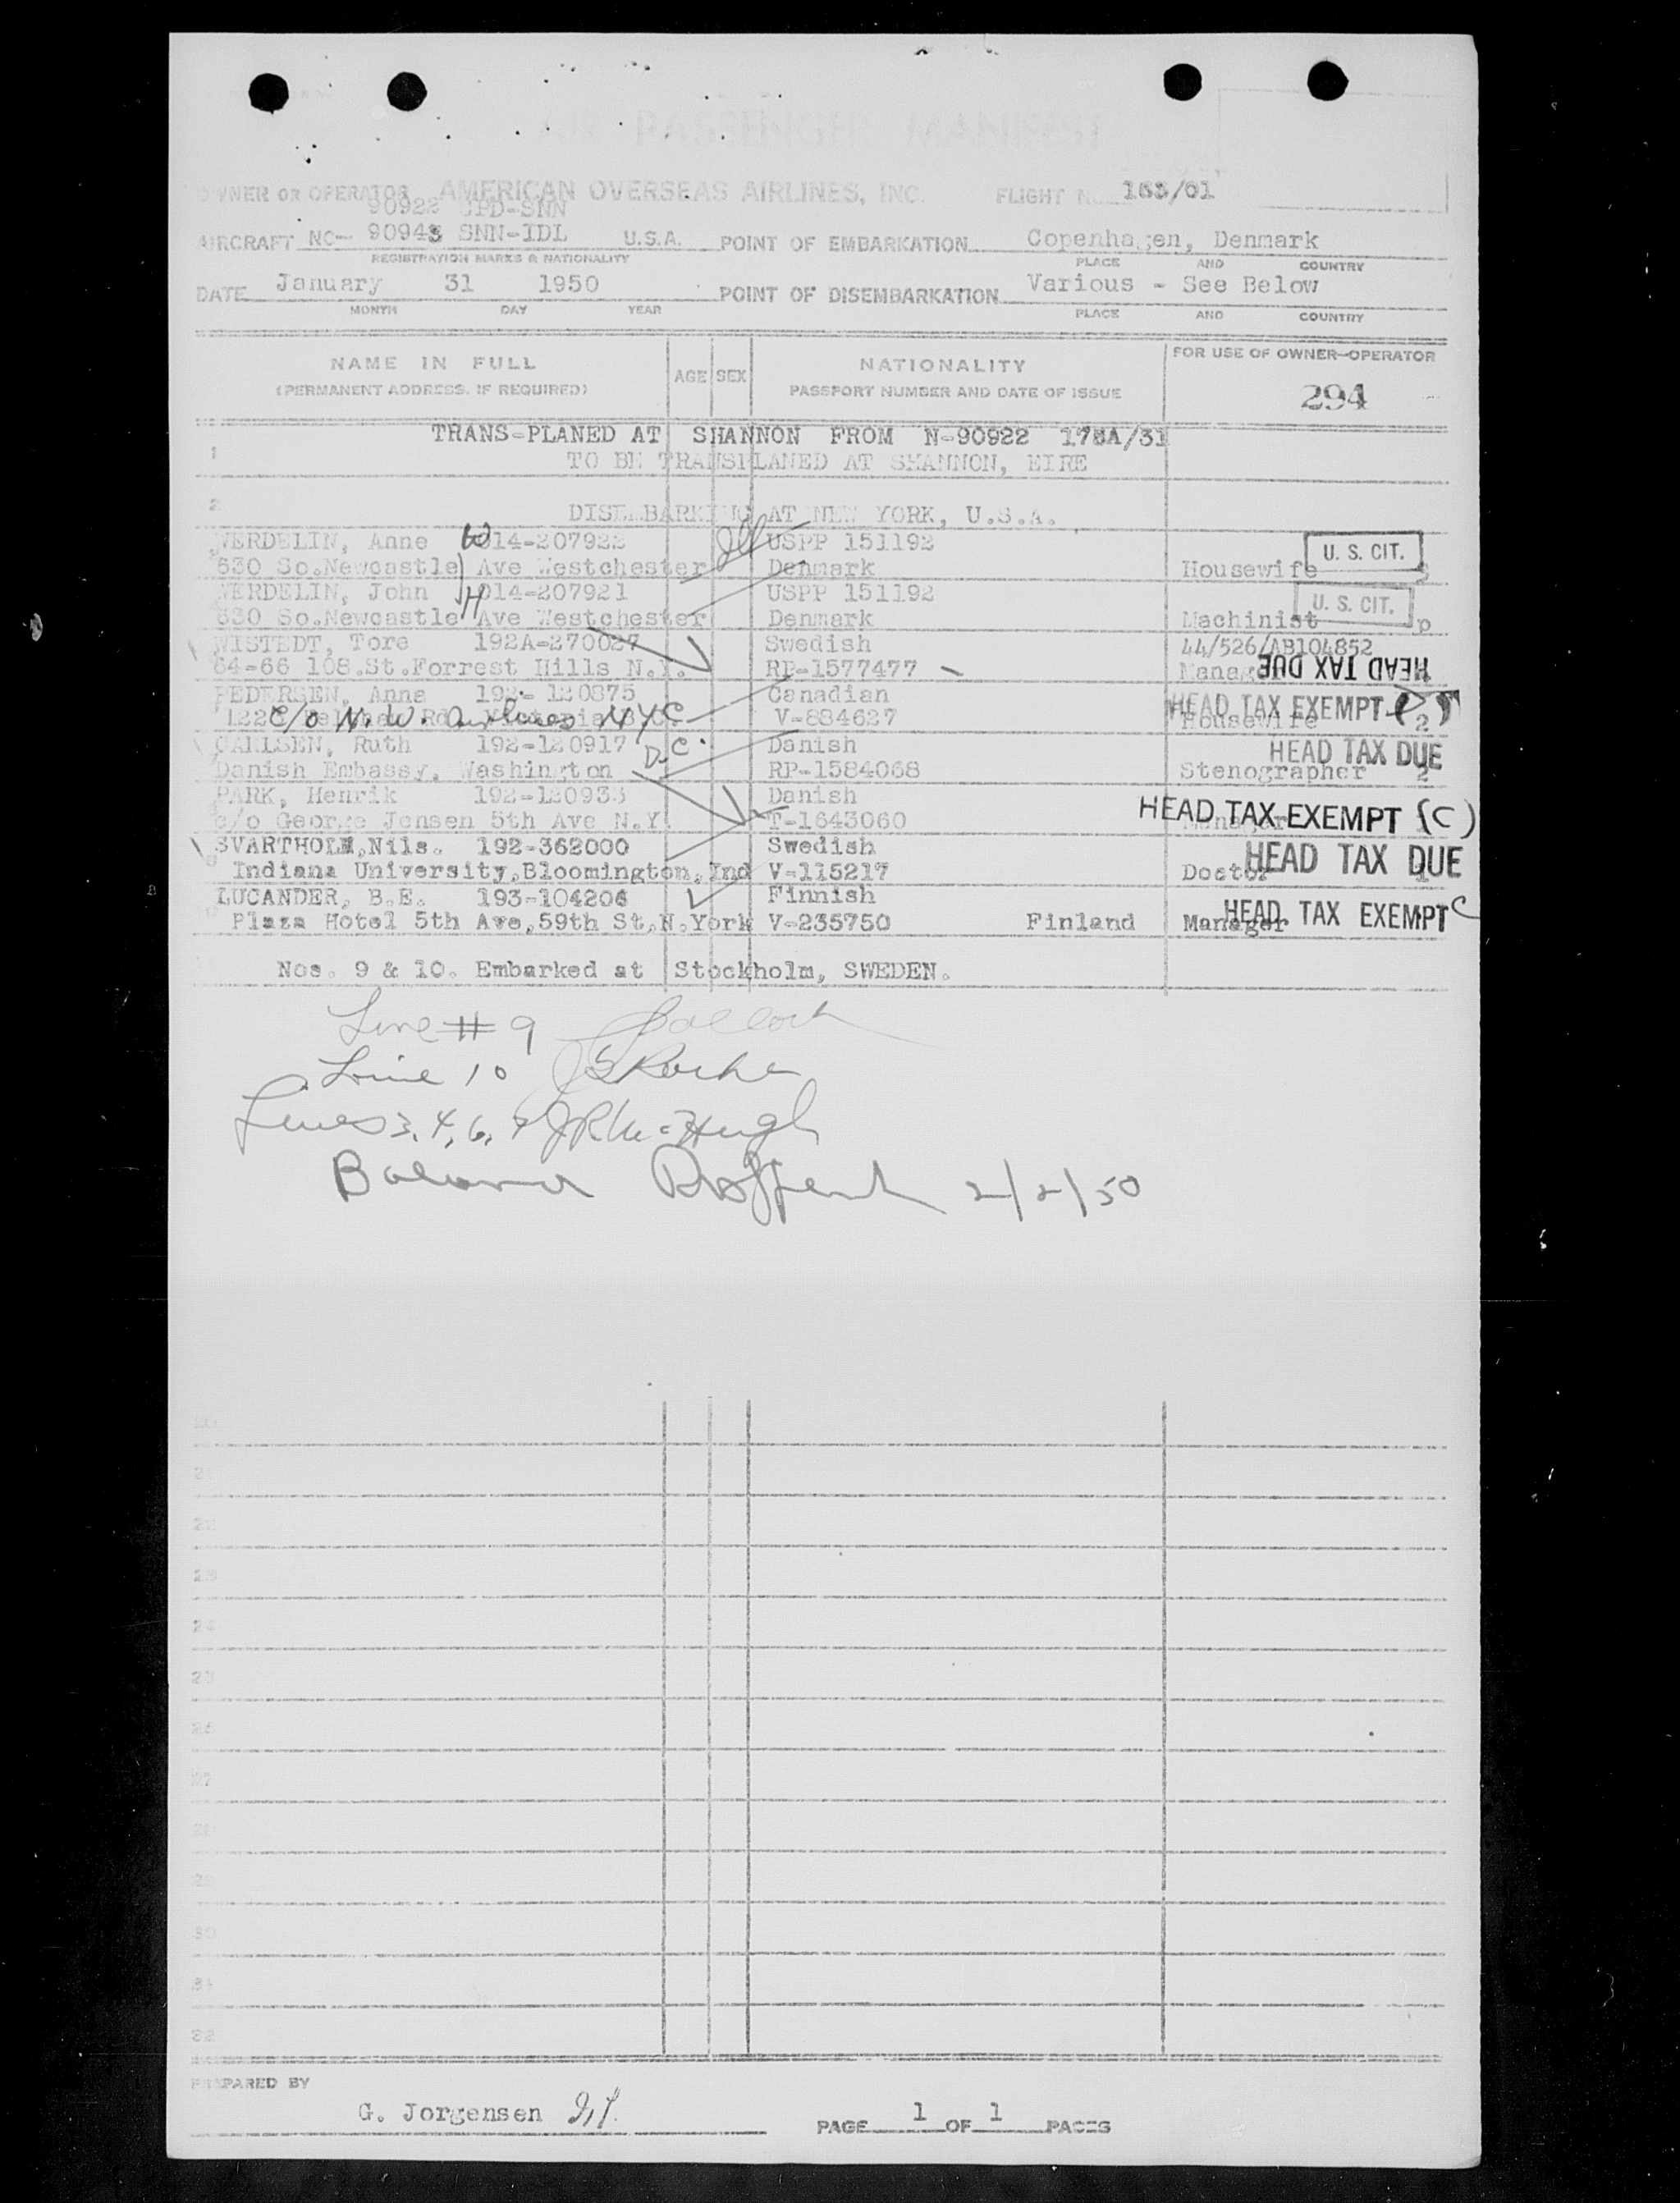 AIR PASSENGER MANIFEST
OWNER OR OPERATOR AMERICAN OVERSEAS AIRLINES, INC. FLIGHT N
90922 CPD-SNN
AIRCRAFT NC- 90943 SNN-IDL U.S.A. POINT OF EMBARKATION Copenhagen, Denmark
REGISTRATION MARKS & NATIONALITY PLACE AND COUNTRY
DATE January 31 1950 POINT OF DISEMBARKATION Various - See Below
MONTH DAY YEAR PLACE AND COUNTRY
NAME IN FULL AGE SEX NATIONALITY FOR USE OF OWNER-OPERATOR
(PERMANENT ADDRESS, IF REQUIRED) PASSPORT NUMBER AND DATE OF ISSUE 294
TRANS-PLANED AT SHANNON FROM N-90922 178A/31
1 TO BE TRANSPLANED AT SHANNON, EIRE
2 DISEMBARKING AT NEW YORK, U.S.A.
WERDELIN, Anne W 014-207922 USPP 151192 U. S. CIT.
630 So.Newcastle Ave Westchester Denmark Housewife
WERDELIN, John H 014-207921 USPP 151192 U. S. CIT.
630 So.Newcastle Ave Westchester Denmark Machinist
WISTEDT, Tore 192A-270027 Swedish 44/526/AB104852
64-66 108.St.Forrest Hills N.Y. RP-1577477 Manager HEAD TAX DUE
PEDERSEN, Anna 192-120875 Canadian HEAD TAX EXEMPT
c/o N. W. Airlines NYC V-884627 Housewife 2
CARLSEN, Ruth 192-120917 Danish HEAD TAX DUE
Danish Embassy, Washington D.C. RP-1584068 Stenographer 2
PARK, Henrik 192-120933 Danish HEAD TAX EXEMPT (C)
c/o George Jensen 5th Ave N.Y T-1643060 Manager
SVARTHOLM,Nils. 192-362000 Swedish HEAD TAX DUE
Indiana University,Bloomington,Ind V-115217 Doctor
LUCANDER, B.E. 193-104206 Finnish HEAD TAX EXEMPT C
Plaza Hotel 5th Ave,59th St,N.York V-235750 Finland Manager
Nos. 9 & 10. Embarked at Stockholm, SWEDEN.
Line # 9
Line 10
Lines 3, 4, 6, 7 JR McHugh
Balance 2/2/50
22
23
24
26
27
30
32
PREPARED BY
G. Jorgensen
PAGE 1 OF 1 PAGES